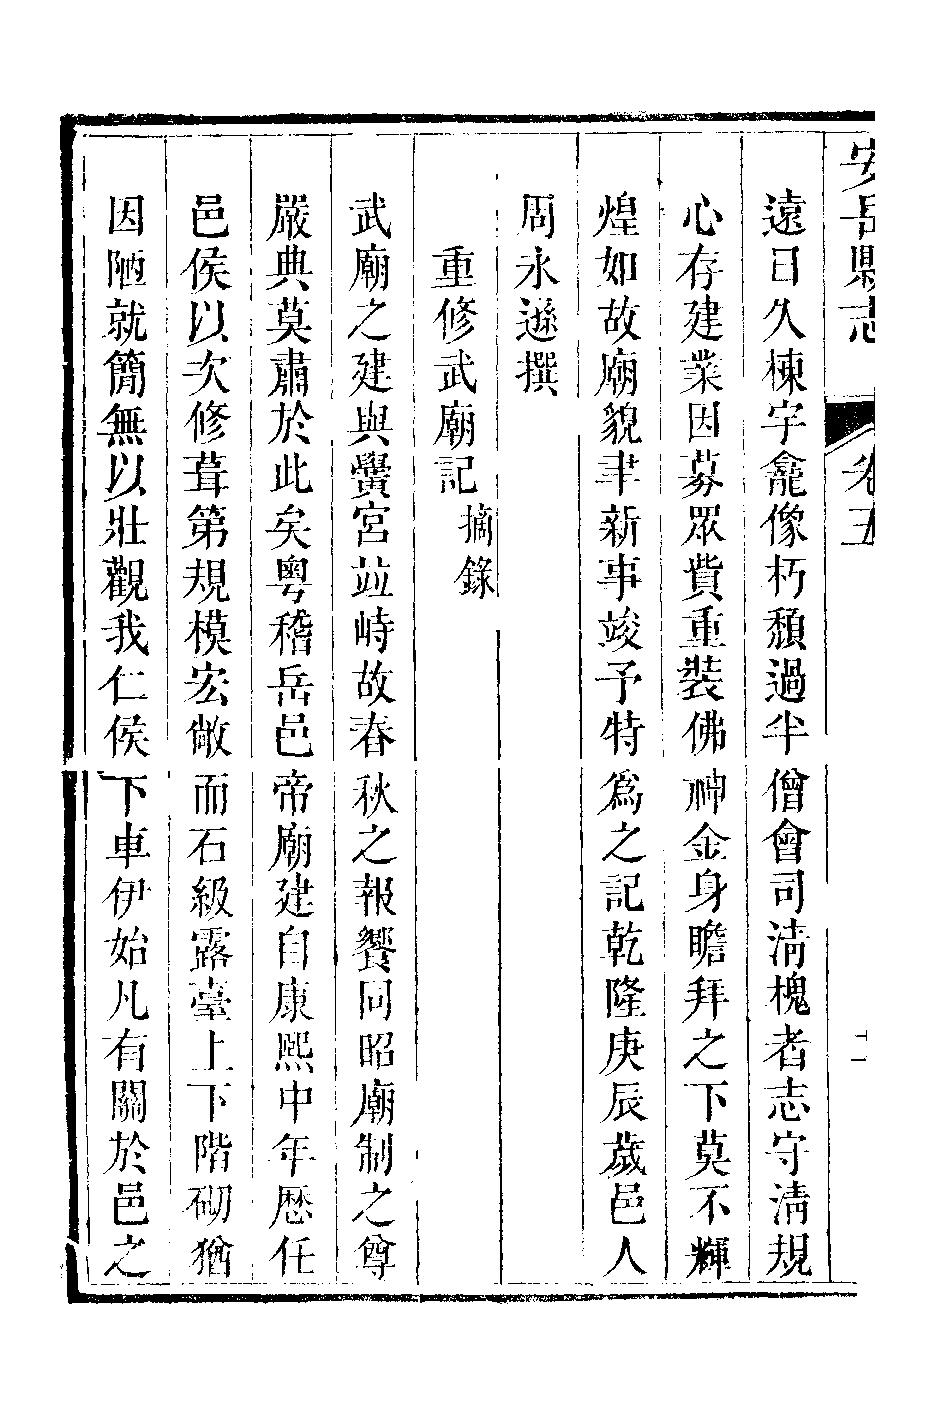 安岳縣志 卷五 十一
遠日久棟宇龕像朽頽過半僧會司淸槐者志守淸規
心存建業因募眾貲重裝佛神金身瞻拜之下莫不輝
煌如故廟貌聿新事竣予特爲之記乾隆庚辰歲邑人
周永遜撰
重修武廟記 摘錄
武廟之建與黌宮竝峙故春秋之報饗同昭廟制之尊
嚴典莫肅於此矣粵稽岳邑帝廟建自康熙中年歷任
邑侯以次修葺第規模宏敞而石級露臺上下階砌猶
因陋就簡無以壯觀我仁侯下車伊始凡有關於邑之